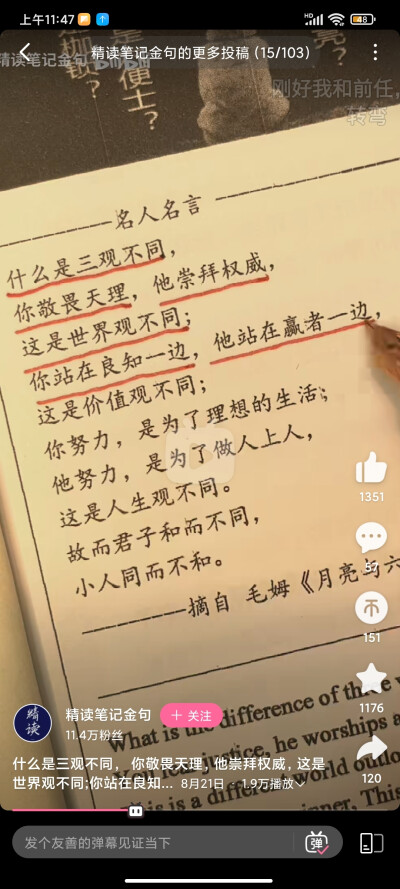 上午11:47
48
精读笔记金句的更多投稿 (15/103)
精读笔记金句
便士?
刚好我和前任,
转弯
名人名言
什么是三观不同,
你敬畏天理, 他崇拜权威,
这是世界观不同;
你站在良知一边, 他站在赢者一边,
这是价值观不同;
你努力, 是为了理想的生活;
他努力, 是为了做人上人,
这是人生观不同。
故而君子和而不同,
小人同而不和。
摘自 毛姆《月亮与六
1351
57
151
1176
120
精读
精读笔记金句
11.4万粉丝
+ 关注
What is the difference of three v
fear justice, he worships a
is is a different world outlo
nner, This
什么是三观不同, 你敬畏天理, 他崇拜权威, 这是
世界观不同;你站在良知... 8月21日 1.9万播放
发个友善的弹幕见证当下
弹